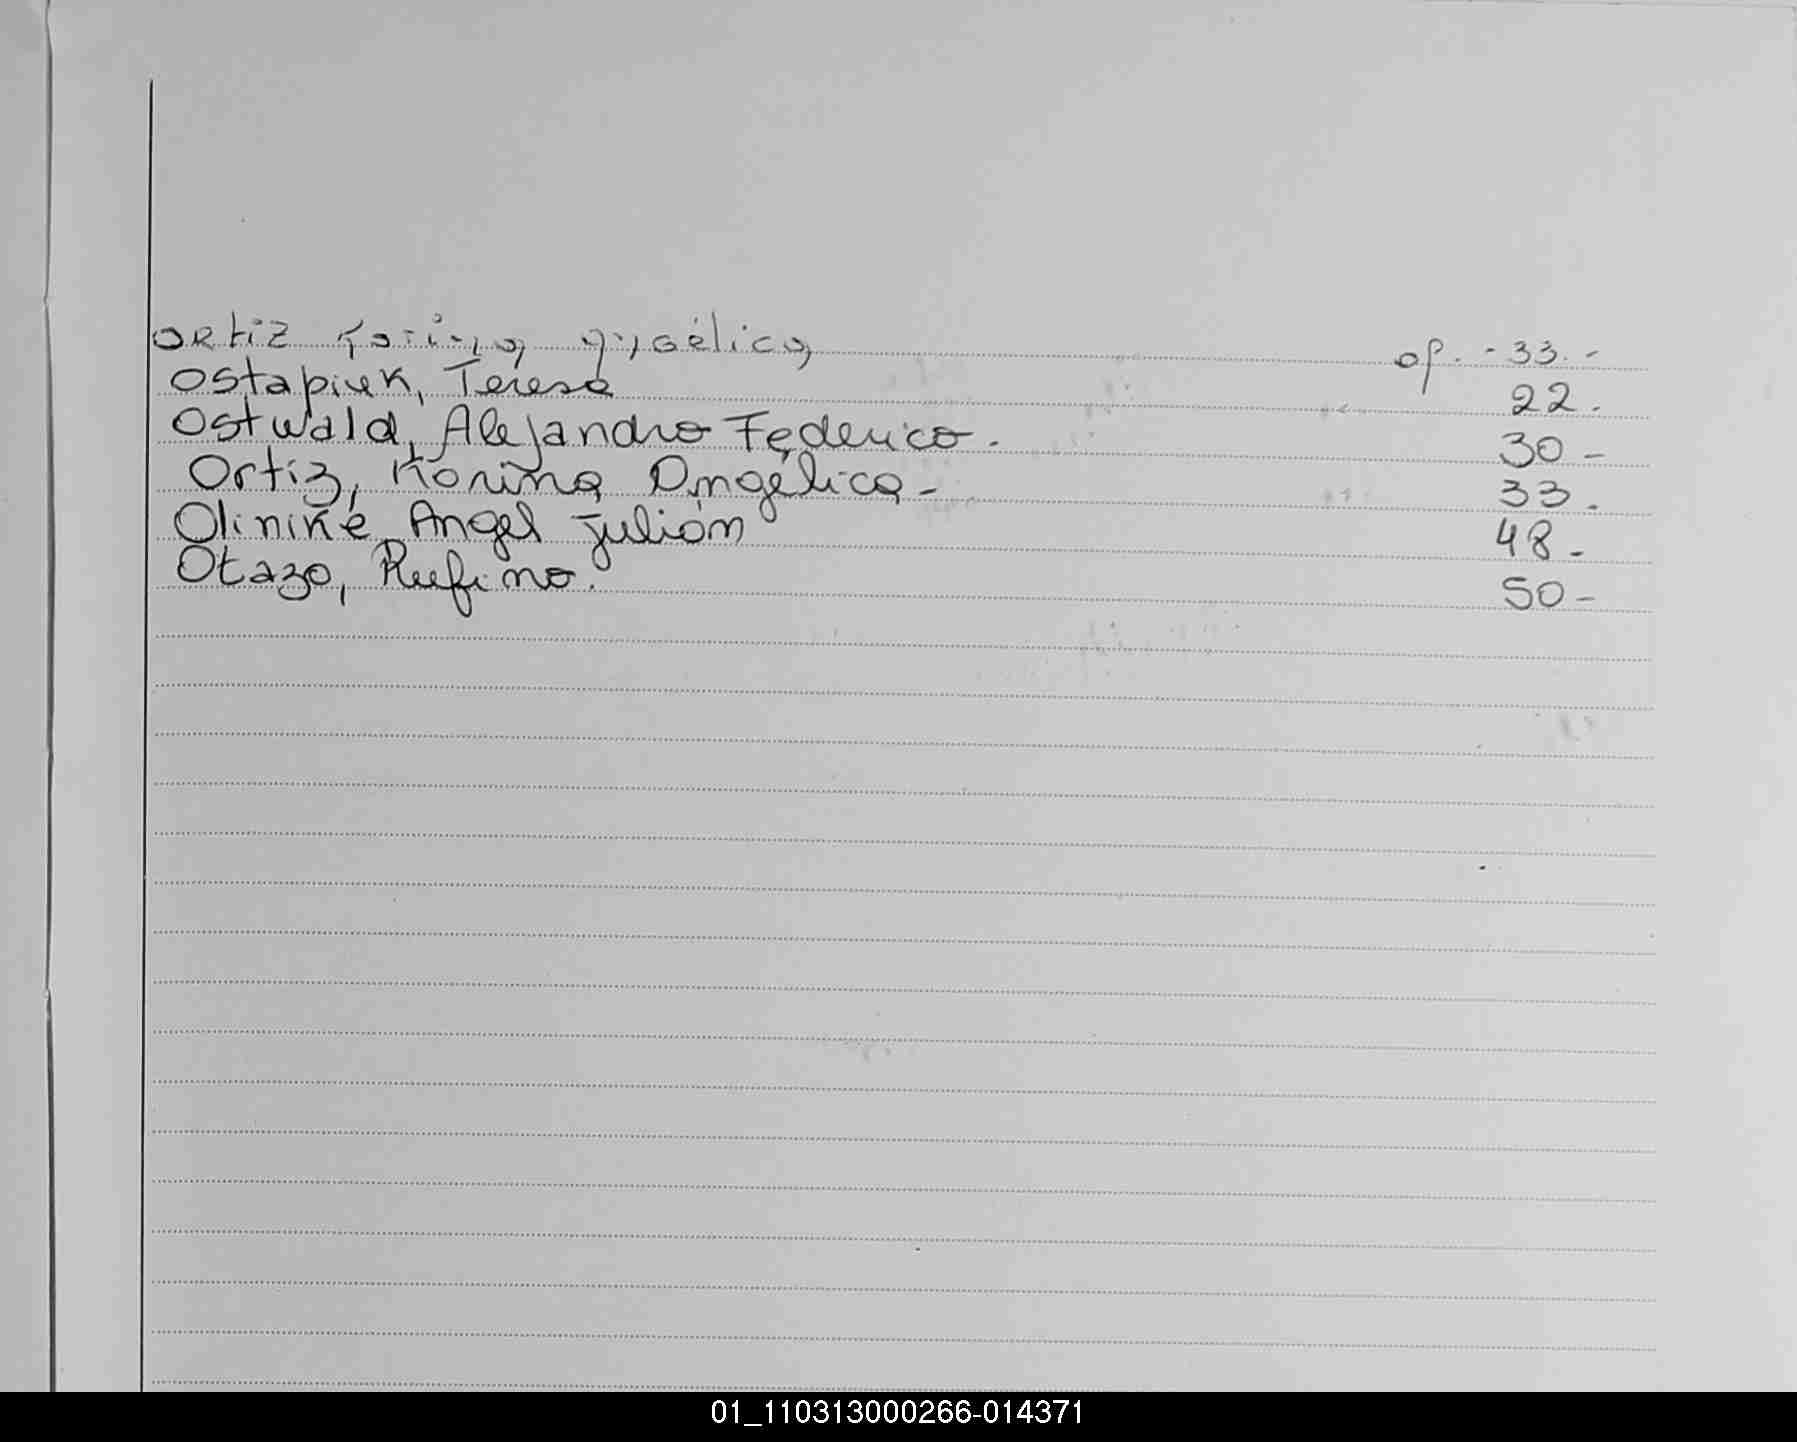 Ortiz Karina Angélica op. - 33. -
Ostapiuk, Teresa 22.
Ostwald, Alejandro Federico. 30 -
Ortiz, Karina Angélica - 33.
Olinike, Angel Julián 48 -
Otazo, Rufino. 50 -
01_110313000266-014371